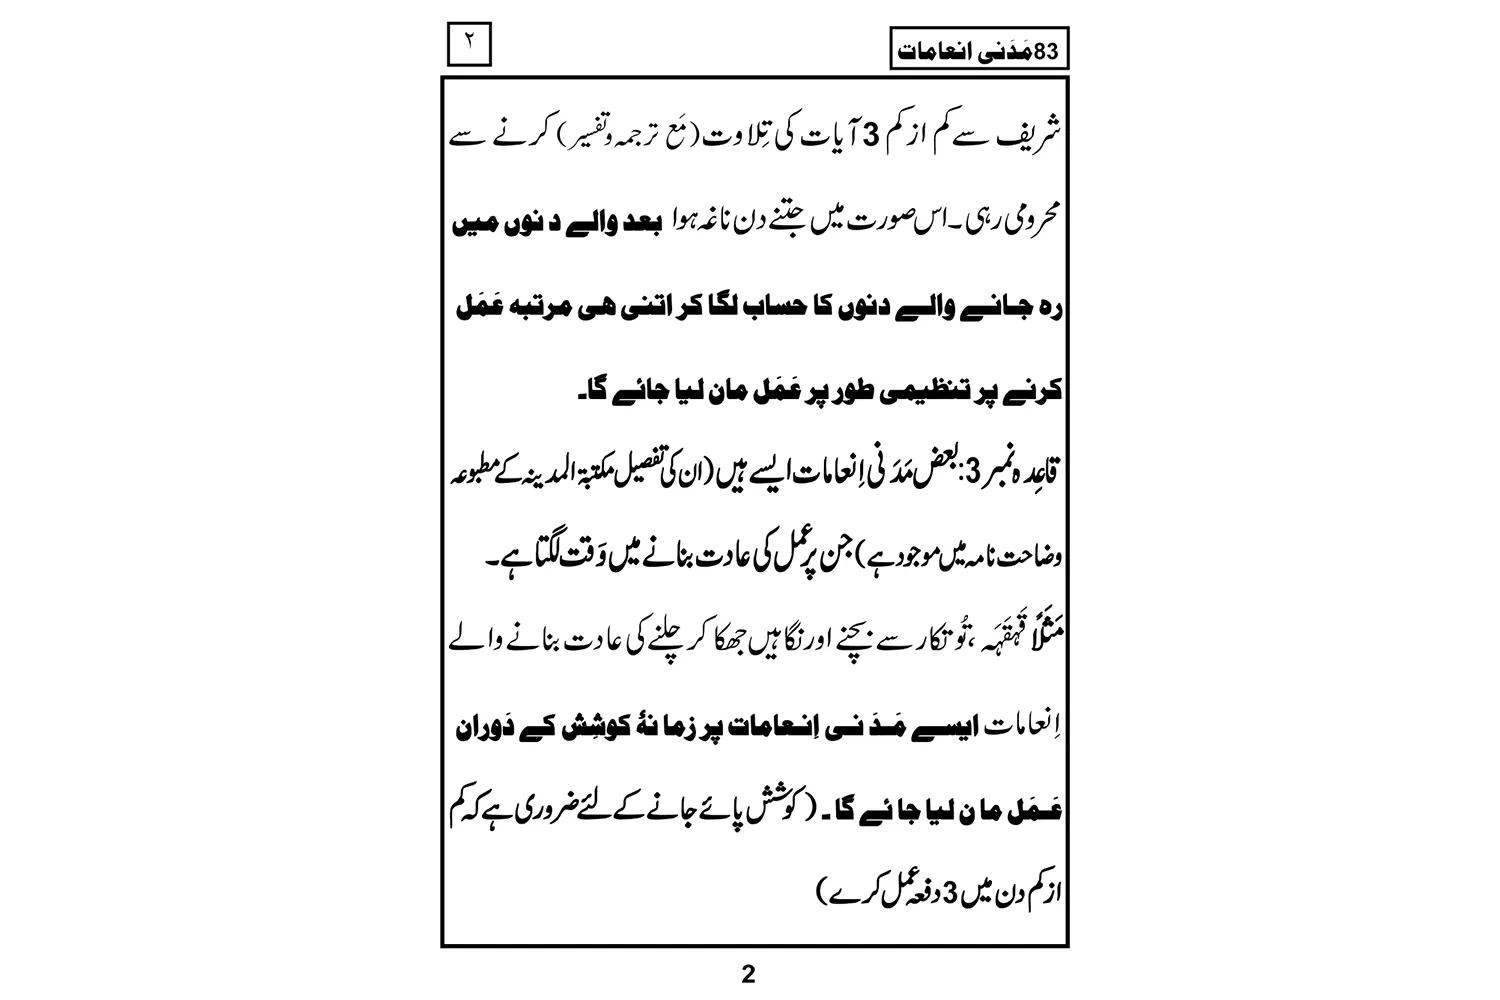 83مَدَنی انعامات
۲
شریف سے کم از کم 3 آیات کی تِلاوت (مَع ترجمہ و تفسیر) کرنے سے
محرومی رہی ۔ اس صورت میں جتنے دن ناغہ ہوا بعد والے دنوں میں
رہ جانے والے دنوں کا حساب لگا کر اتنی ھی مرتبہ عَمَل
کرنے پر تنظیمی طور پر عَمَل مان لیا جائے گا۔
قاعِدہ نمبر 3: بعض مَدَنی اِنعامات ایسے ہیں (ان کی تفصیل مکتبۃ المدینہ کے مطبوعہ
وضاحت نامہ میں موجود ہے) جن پر عمل کی عادت بنانے میں وَقت لگتا ہے ۔
مَثَلًا قَہقَہَہ ، تُو تکار سے بچنے اور نگاہیں جھکا کر چلنے کی عادت بنانے والے
اِنعامات ایسے مَدَنی اِنعامات پر زمانۂ کوشِش کے دَوران
عَمَل مان لیا جائے گا ۔ (کوشش پائے جانے کے لئے ضروری ہے کہ کم
از کم دن میں 3 دفعہ عمل کرے)
2